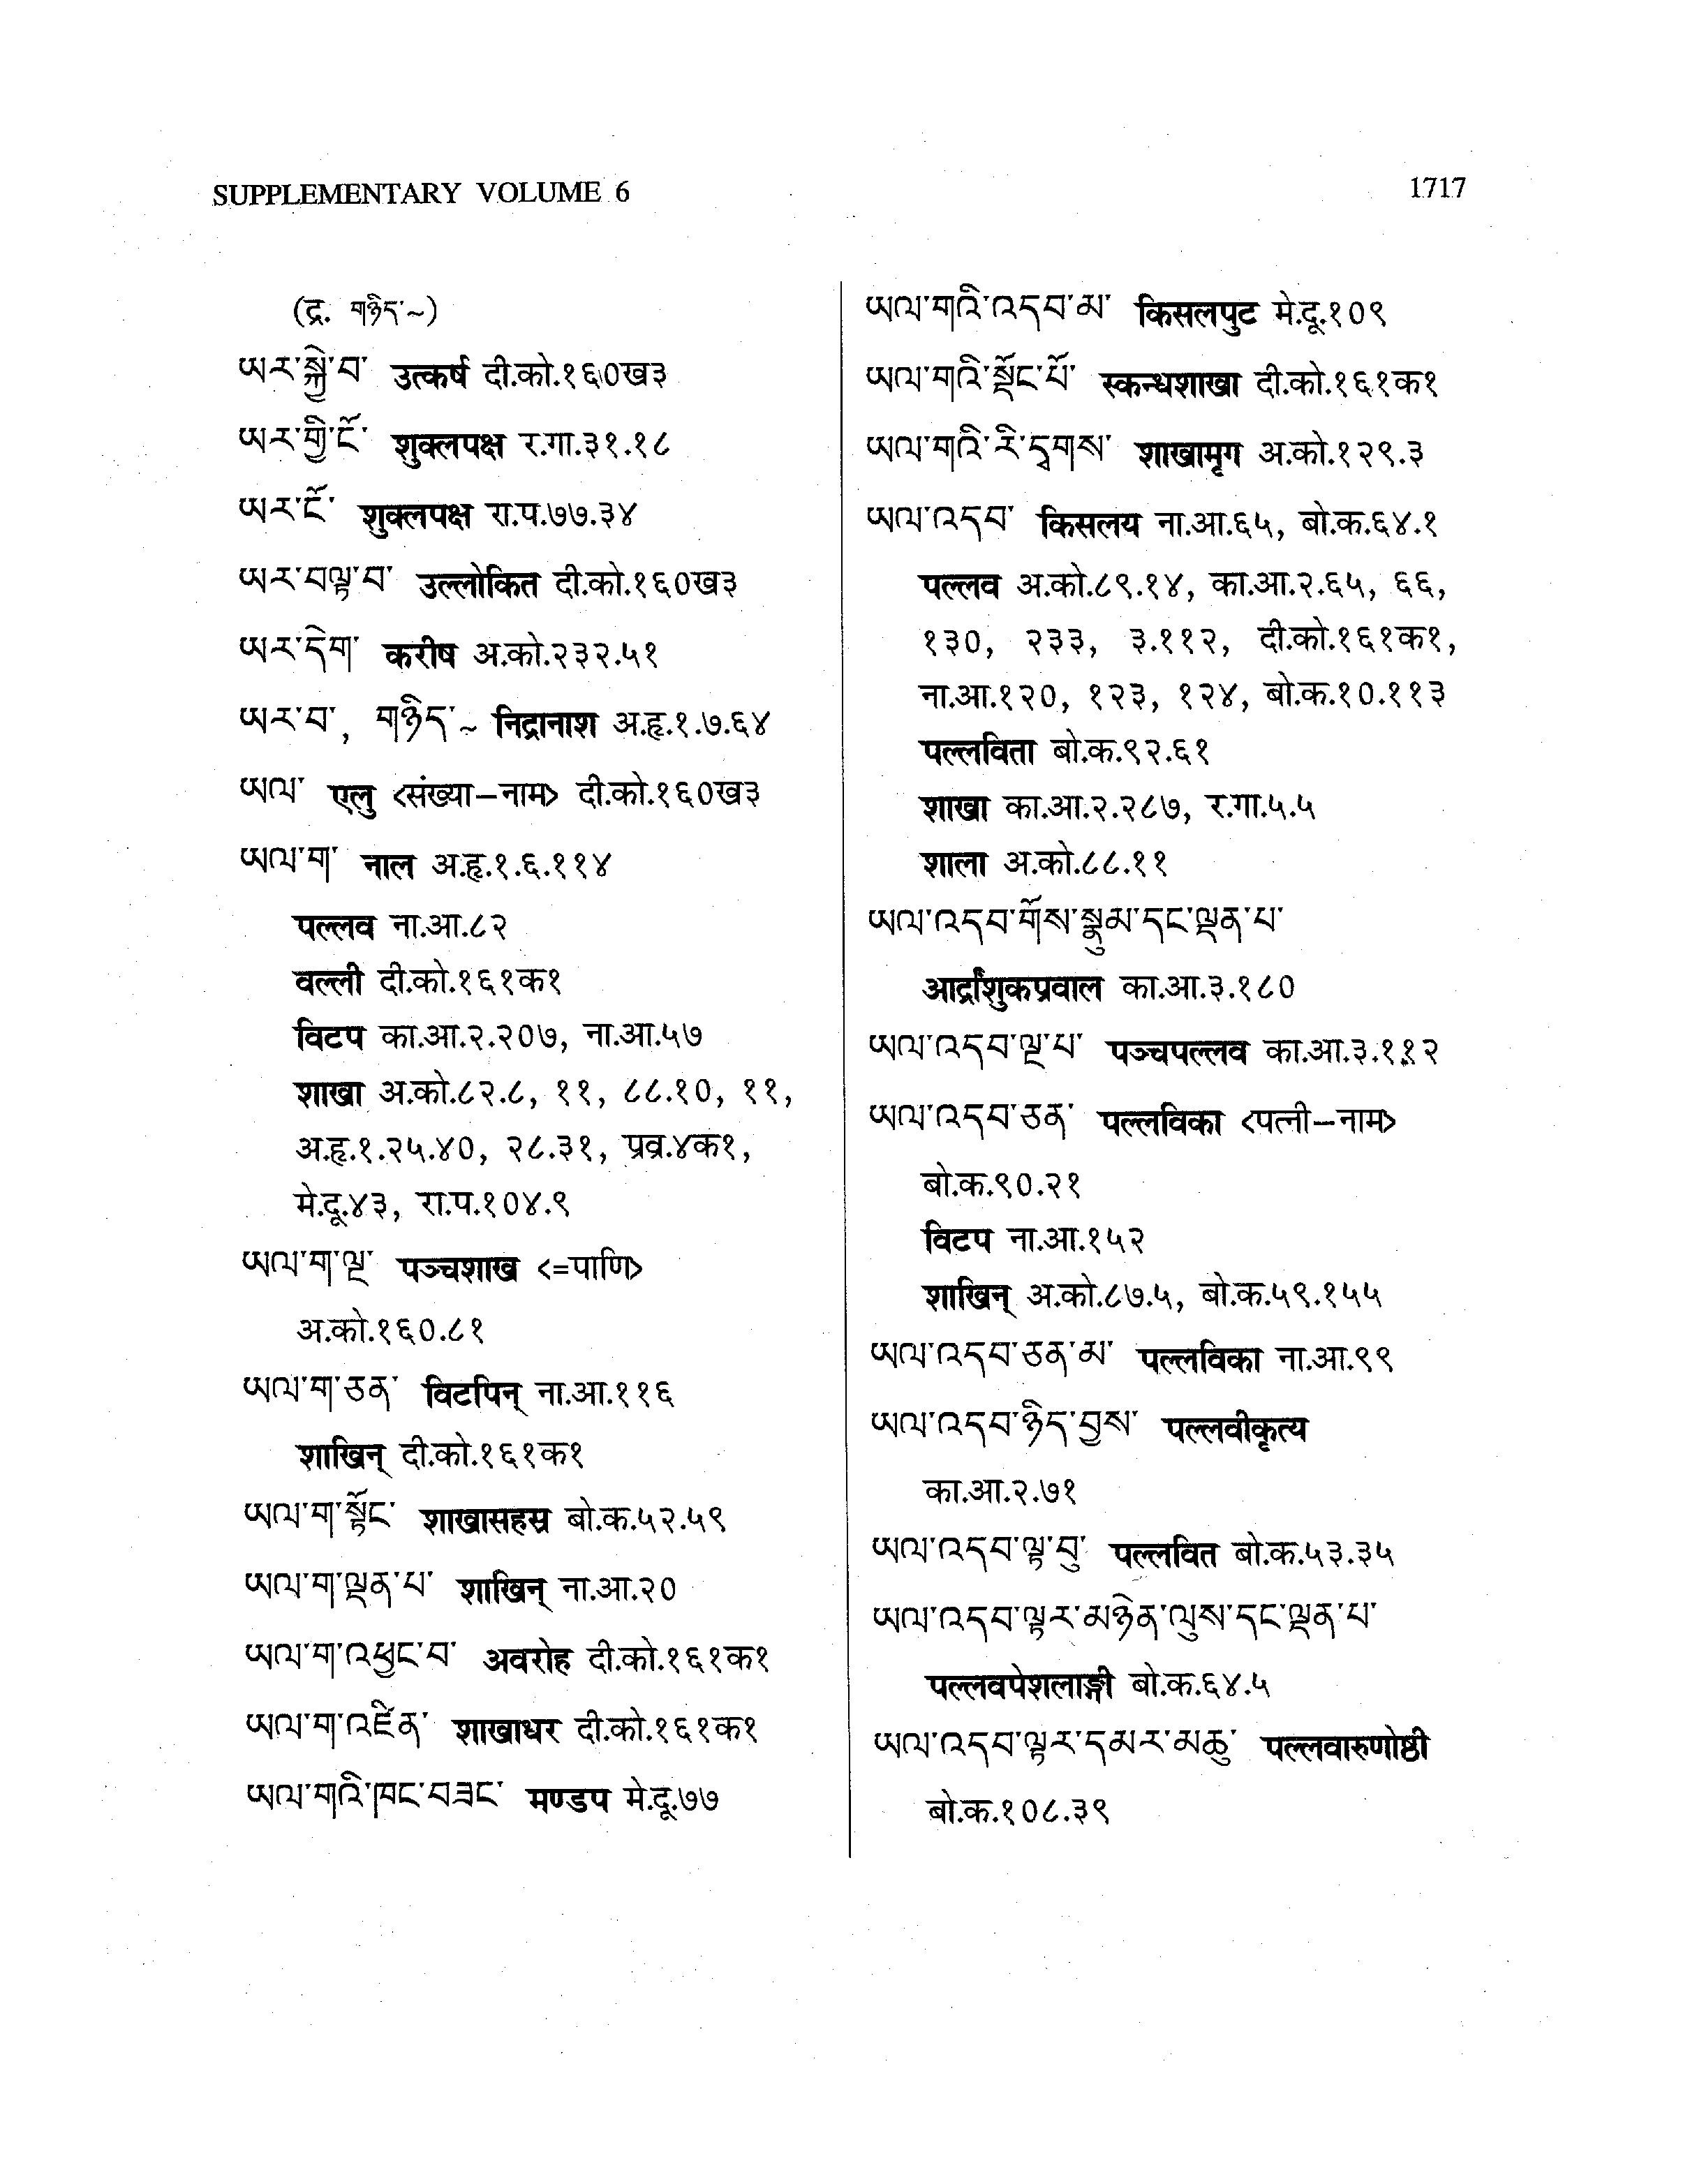 SUPPLEMENTARY VOLUME 6
1717
(द्र. གཉིད་~)
ཡར་སྐྱེ་བ་ उत्कर्ष दी.को.१६०ख३
ཡར་གྱི་ངོ་ शुक्लपक्ष र.गा.३१.१८
ཡར་ངོ་ शुक्लपक्ष रा.प.७७.३४
ཡར་བལྟ་བ་ उल्लोकित दी.को.१६०ख३
ཡར་དེག་ करीष अ.को.२३२.५१
ཡར་བ་, གཉིད་~ निद्रानाश अ.हृ.१.७.६४
ཡལ་ एलु <संख्या–नाम> दी.को.१६०ख३
ཡལ་ག་ नाल अ.हृ.१.६.११४
पल्लव ना.आ.८२
वल्ली दी.को.१६१क१
विटप का.आ.२.२०७, ना.आ.५७
शाखा अ.को.८२.८, ११, ८८.१०, ११,
अ.हृ.१.२५.४०, २८.३१, प्रव्र.४क१,
मे.दू.४३, रा.प.१०४.९
ཡལ་ག་ལྔ་ पञ्चशाख <=पाणि>
अ.को.१६०.८१
ཡལ་ག་ཅན་ विटपिन् ना.आ.११६
शाखिन् दी.को.१६१क१
ཡལ་ག་སྟོང་ शाखासहस्र बो.क.५२.५९
ཡལ་ག་ལྡན་པ་ शाखिन् ना.आ.२०
ཡལ་ག་འཕྱང་བ་ अवरोह दी.को.१६१क१
ཡལ་ག་འཛིན་ शाखाधर दी.को.१६१क१
ཡལ་གའི་ཁང་བཟང་ मण्डप मे.दू.७७
ཡལ་གའི་འདབ་མ་ किसलपुट मे.दू.१०९
ཡལ་གའི་སྡོང་པོ་ स्कन्धशाखा दी.को.१६१क१
ཡལ་གའི་རི་དྭགས་ शाखामृग अ.को.१२९.३
ཡལ་འདབ་ किसलय ना.आ.६५, बो.क.६४.१
पल्लव अ.को.८९.१४, का.आ.२.६५, ६६,
१३०, २३३, ३.११२, दी.को.१६१क१,
ना.आ.१२०, १२३, १२४, बो.क.१०.११३
पल्लविता बो.क.९२.६१
शाखा का.आ.२.२८७, र.गा.५.५
शाला अ.को.८८.११
ཡལ་འདབ་གོས་སྣུམ་དང་ལྡན་པ་
आर्द्रांशुकप्रवाल का.आ.३.१८०
ཡལ་འདབ་ལྔ་པ་ पञ्चपल्लव का.आ.३.११२
ཡལ་འདབ་ཅན་ पल्लविका <पत्नी–नाम>
बो.क.९०.२१
विटप ना.आ.१५२
शाखिन् अ.को.८७.५, बो.क.५९.१५५
ཡལ་འདབ་ཅན་མ་ पल्लविका ना.आ.९९
ཡལ་འདབ་ཉིད་བྱས་ पल्लवीकृत्य
का.आ.२.७१
ཡལ་འདབ་ལྟ་བུ་ पल्लवित बो.क.५३.३५
ཡལ་འདབ་ལྟར་མཉེན་ལུས་དང་ལྡན་པ་
पल्लवपेशलाङ्गी बो.क.६४.५
ཡལ་འདབ་ལྟར་དམར་མཆུ་ पल्लवारुणोष्ठी
बो.क.१०८.३९